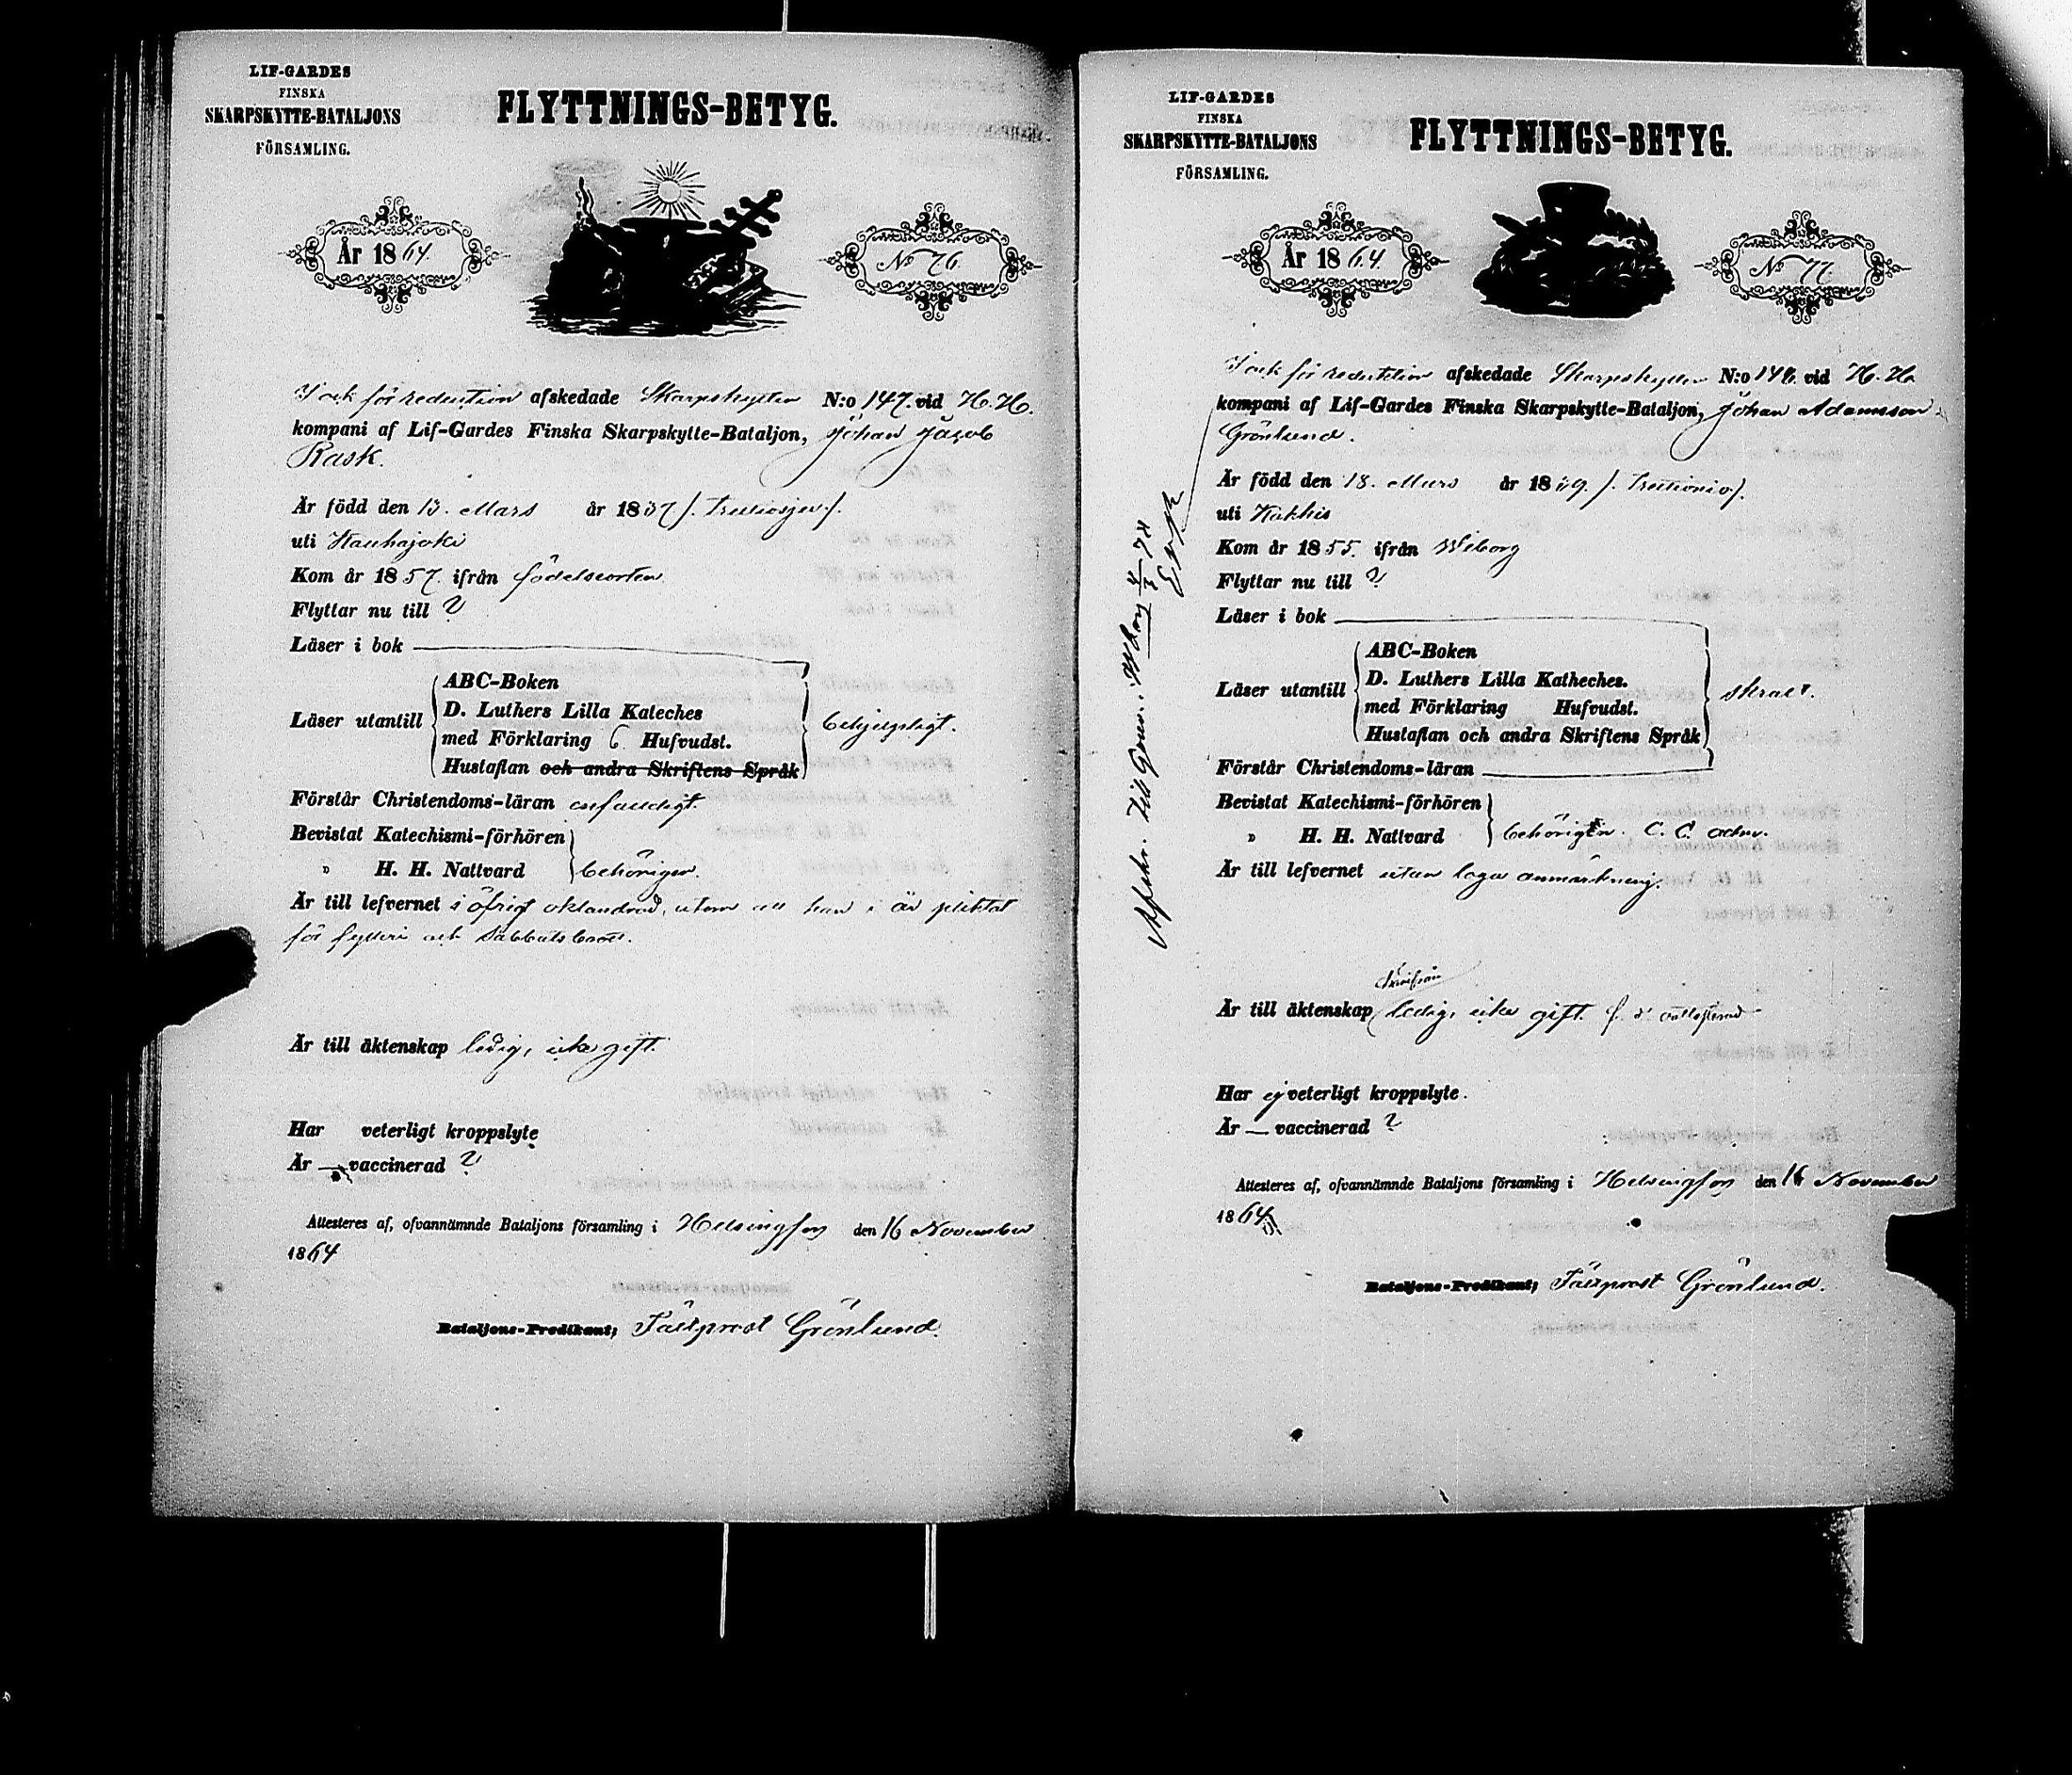 LIF-GARDES
FINSKA
SKARPSKYTTE-BATALJONS
FÖRSAMLING.
FLYTTNINGS-BETYG.
År 1864.
No 76.
för reduction afskedade Skarpskytten N:o 147. vid H. H.
kompani af Lif-Gardes Finska Skarpskytte-Bataljon, Johan Jacob
Rask.
Är född den 13. Mars år 1837 /. trettiosju /.
uti Kauhajoki
Kom år 1857. ifrån födelseorten
Flyttar nu till ?
Läser i bok
Läser utantill
ABC-Boken
D. Luthers Lilla Kateches
med Förklaring 6 Hufvudst.
Hustaflan och andra Skriftens Språk
behjelpligt.
Förstår Christendoms-läran enfaldigt.
Bevistat Katechismi-förhören
" H. H. Nattvard
behörigen.
Är till lefvernet i öfrigt oklandrad, utom att han i år pliktat
för fylleri och Sabbatsbrott.
Är till äktenskap ledig, icke gift.
Har veterligt kroppslyte
Är — vaccinerad ?
Attesteres af, ofvannämnde Bataljons församling i Helsingfors den 16 November
1864
Bataljons-Predikant; Fältprost Grönlund.
LIF-GARDES
FINSKA
SKARPSKYTTE-BATALJONS
FÖRSAMLING.
FLYTTNINGS-BETYG.
År 1864.
No 77.
för reduktion afskedade Skarpskytten N:o 148. vid H. H.
kompani af Lif-Gardes Finska Skarpskytte-Bataljon, Johan Adamsson
Grönlund.
Är född den 18. Mars år 1839. /. trettionio /.
uti Kakkis
Kom år 1855. ifrån Wiborg
Flyttar nu till ?
Läser i bok
Läser utantill
ABC-Boken
D. Luthers Lilla Katheches.
med Förklaring Hufvudst.
Hustaflan och andra Skriftens Språk
skralt.
Förstår Christendoms-läran
Bevistat Katechismi-förhören
" H. H. Nattvard
behörigen. C. C. adm.
Är till lefvernet utan laga anmärkning.
härifrån
Är till äktenskap ledig, icke gift.
Har ej veterligt kroppslyte.
Är — vaccinerad ?
Attesteres af, ofvannämnde Bataljons församling i Helsingfors den 16 November
1864
Bataljons-Predikant; Fältprost Grönlund.
Afskr. till Guver. i Wborg